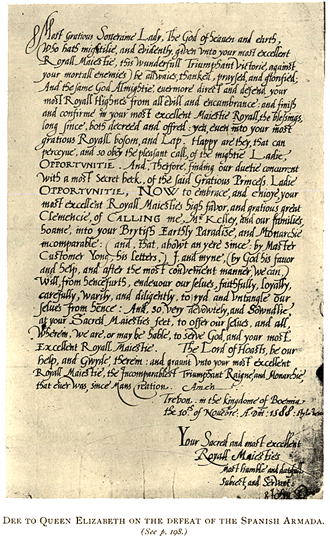 Most Gratious Soueraine Lady, The God of heauen and earth,
Who hath mightilie, and evidently, given vnto your most excellent
Royall Maiestie, this wunderfull Triumphant Victorie, against
your mortall enemies; be allwaies, thanked, praysed, and glorified;
And the same God Almightie, euermore direct and defend your
most Royall Highnes from all evill and encumbrance: and finish
and confirme in your most excellent Maiestie Royall, the blessings,
long since, both decreed and offred: yea, euen into your most
gratious Royall bosom, and Lap. Happy are they, that can
perceyue, and so obey the pleasant call, of the mightie Ladie,
OPPORTVNITIE. And, Therefore, finding our duetie concurrent
with a most Secret beck, of the said Gratious Princess, Ladie
OPPORTVNITIE, NOW to embrace, and enioye, your
most excellent Royall Maiesties high favor, and gratious great
Clemencie, of CALLING me, Mr Kelley, and our families,
hoame, into your Brytish Earthly Paradise, and Monarchie
incomparable: (and, that, abowt an yere since: by Master
Customer Yong, his letters,) I, and myne, (by God his favor
and help, and after the most convenient manner we can,)
Will, from henceforth, endevour our selues, faithfully, loyally,
carefully, warily, and diligently, to ryd and vntangle our
selues from hence: And, so, very devowtely, and Sowndlie,
at your Sacred Maiesties feet, to offer our selues, and all,
Wherein, we are, or may be hable, to serve God, and your most
Excellent Royall Maiestie. The Lord of Hoasts, be our
help, and Gwyde, therein: and graunt vnto your most excellent
Royall Maiestie, the Incomparablest Triumphant Raigne, and Monarchie,
that ever was, since Mans creation. Amen.
Trebon. in the kingdome of Boemia,
the 10th of Nouebre: A. Dm: 1588:
Your Sacred and most excellent
Royall Maiesties
most humble and dutifull
subiect, and Servant:
DEE TO QUEEN ELIZABETH ON THE DEFEAT OF THE SPANISH ARMADA.
(See p. 198.)